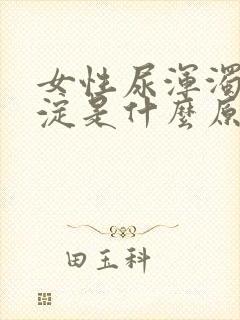 女性尿渾濁
淀是什麼原
田玉科